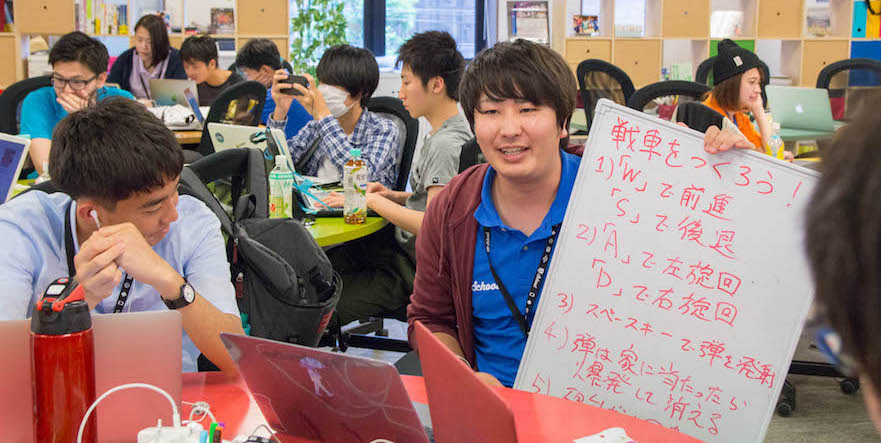 戦車をつくろう!
1)「W」で前進
「S」で後退
2)「A」で左旋回
「D」で右旋回
3) スペースキーで弾を発射
4) 弾は家に当たったら
爆発して消える
5)
School